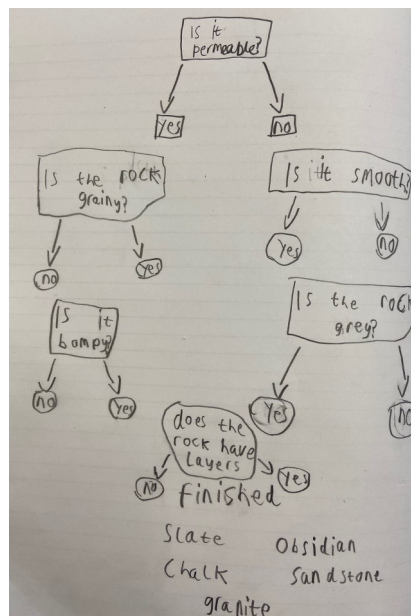 Is it
permeable?
yes
no
Is the rock
grainy?
Is it smooth?
no
yes
yes
no
Is it
bompy?
Is the rock
grey?
no
yes
yes
no
does the
rock have
Layers
no
yes
finished
Slate
Obsidian
Chalk
Sandstone
granite